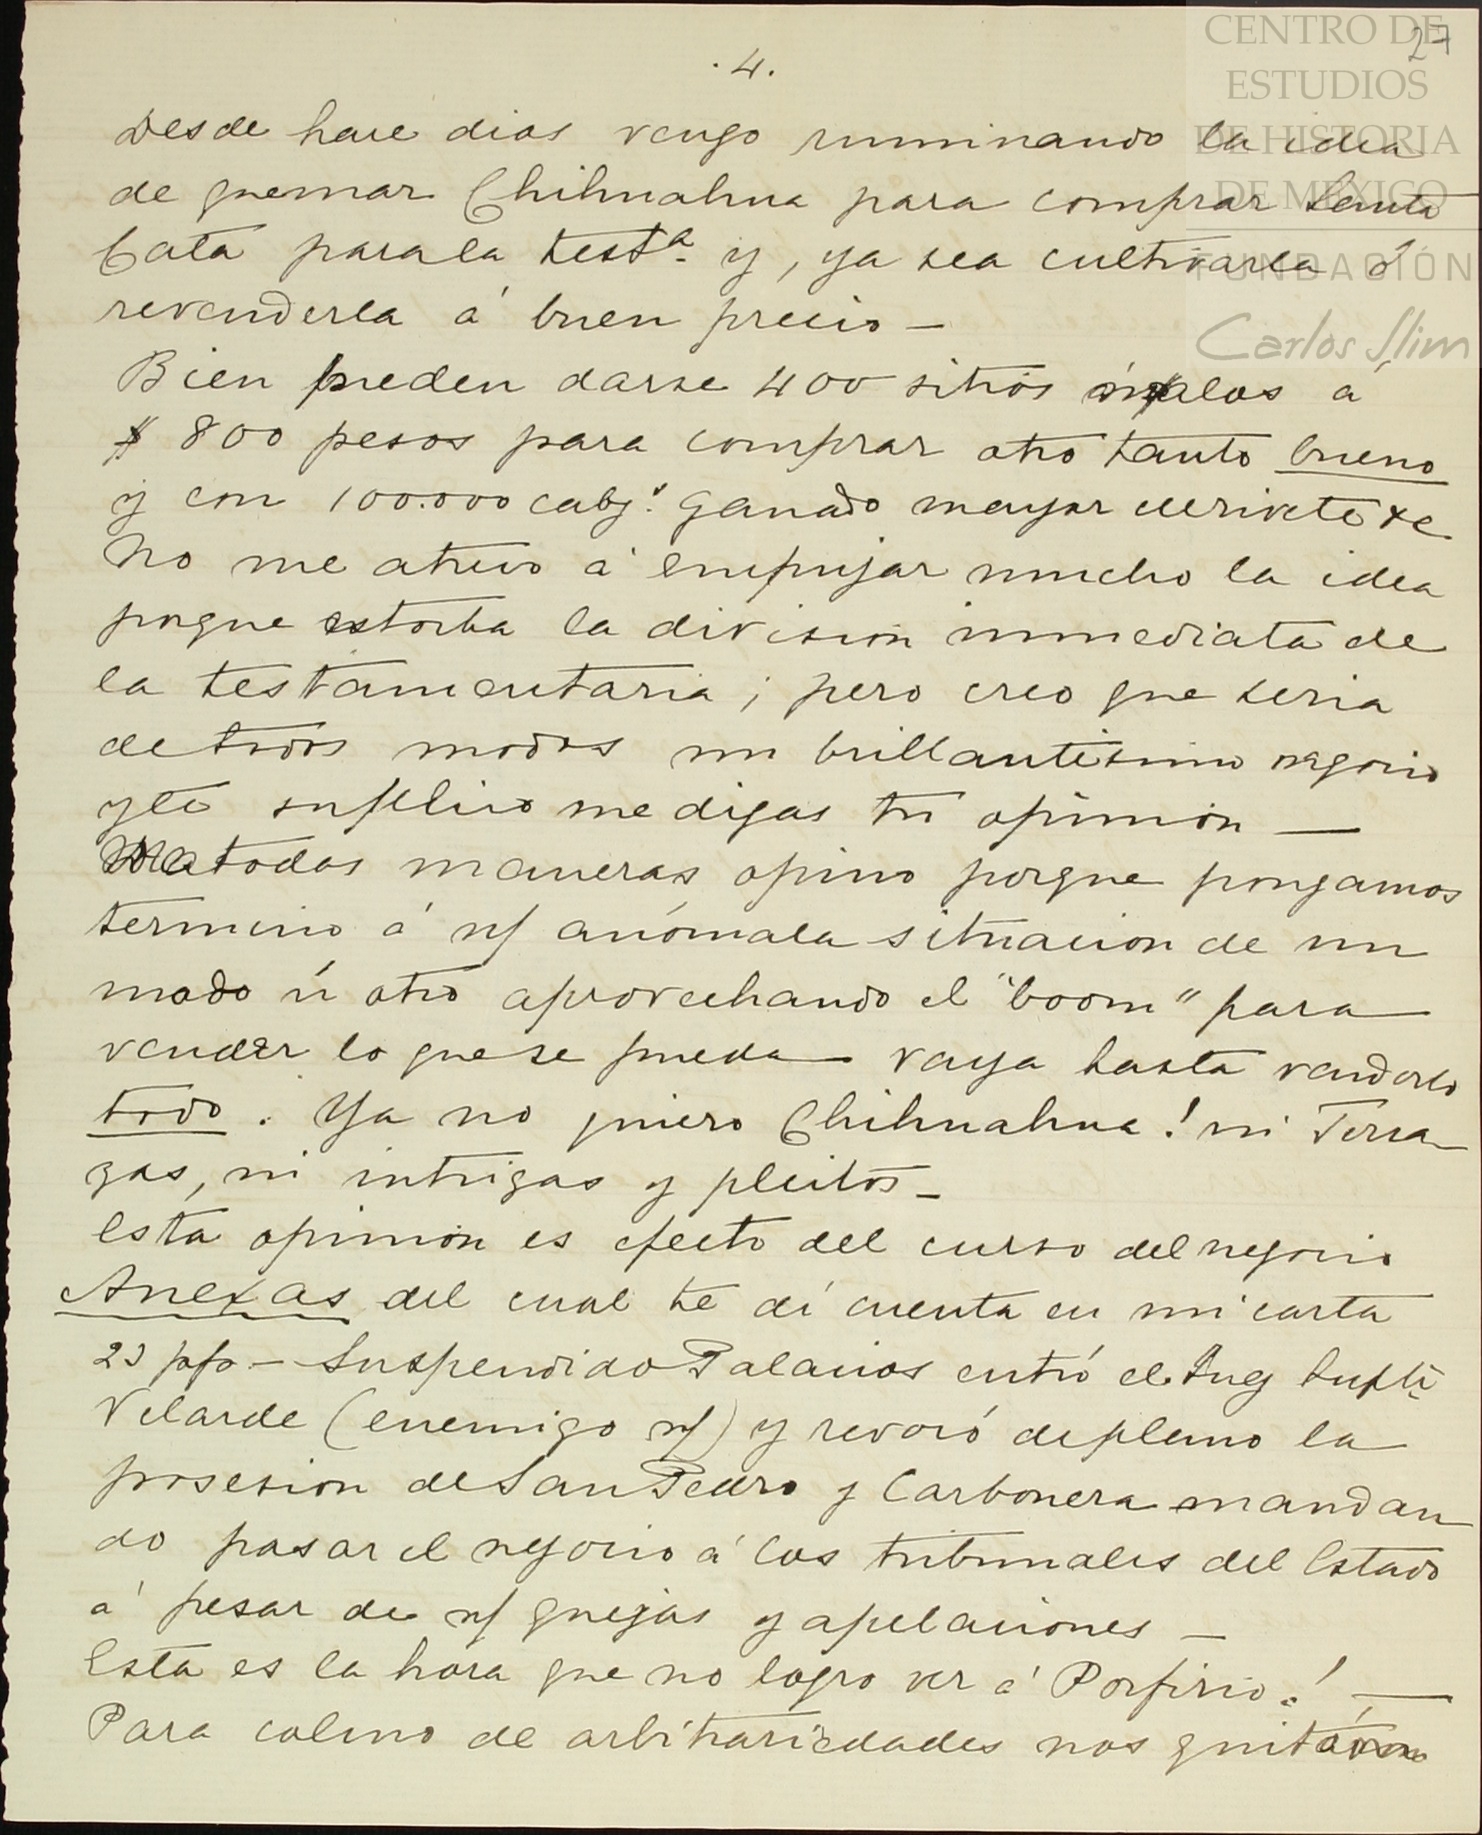 27
CENTRO DE
ESTUDIOS
DE HISTORIA
DE MÉXICO
FUNDACIÓN
Carlos Slim
. 4 .
Desde hace dias vengo ruminando la idea
de quemar Chihuahua para comprar Santa
Cata para la testª y, ya sea cultivarla ó
revenderla á buen precio —
Bien pueden darse 400 sitios malos á
$ 800 pesos para comprar otro tanto bueno
y con 100.000 cabzs ganado mayor
No me atrevo á empujar mucho la idea
porque estorba la division inmediata de
la testamentaria; pero creo que seria
de todos modos un brillantisimo negocio
y te suplico me digas tu opinion —
De todas maneras opino porque pongamos
termino á n/ anómala situacion de un
modo ú otro aprovechando el "boom" para
vender lo que se pueda vaya hasta venderlo
todo. Ya no quiero Chihuahua! ni Terra
zas, ni intrigas y pleitos —
Esta opinion es efecto del curso del negocio
Anexas del cual te dí cuenta en mi carta
23 ppo — Suspendido Palacios entró el Juez Suplte
Velarde (enemigo n/) y revocó de plano la
posesion de San Pedro y Carbonera mandan
do pasar el negocio á los tribunales del Estado
á pesar de n/ quejas y apelaciones —
Esta es la hora que no logro ver á Porfirio! —
Para colmo de arbitrariedades nos quitáron